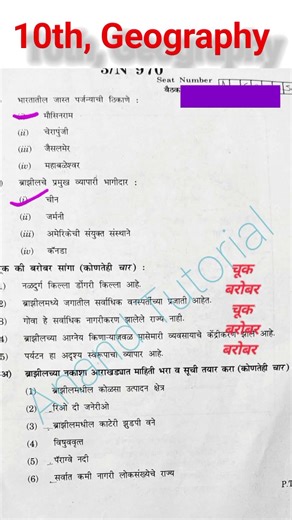 10th, Geography
3/N 970
Seat Number
बैठक
भारतातील जास्त पर्जन्याची ठिकाणे :
मौसिनराम
(ii) चेरापुंजी
(iii) जैसलमेर
(iv) महाबळेश्वर
ब्राझीलचे प्रमुख व्यापारी भागीदार :
(i) चीन
(ii) जर्मनी
(iii) अमेरिकेची संयुक्त संस्थाने
(iv) कॅनडा
चूक की बरोबर सांगा (कोणतेही चार) :
नळदुर्ग किल्ला डोंगरी किल्ला आहे. चूक
2) ब्राझीलमध्ये जगातील सर्वाधिक वनस्पतींच्या प्रजाती आहेत. बरोबर
3) गोवा हे सर्वाधिक नागरीकरण झालेले राज्य नाही. चूक
4) ब्राझीलच्या आग्नेय किनाऱ्याजवळ मासेमारी व्यवसायाचे केंद्रीकरण झाले आहे. बरोबर
5) पर्यटन हा अदृश्य स्वरूपाचा व्यापार आहे. बरोबर
अ) ब्राझीलच्या नकाशा आराखड्यात माहिती भरा व सूची तयार करा (कोणतेही चार)
(1) ब्राझीलमधील कोळसा उत्पादन क्षेत्र
(2) रिओ दी जनेरीओ
(3) ब्राझीलमधील काटेरी झुडपी वने
(4) विषुववृत्त
(5) पॅराग्वे नदी
(6) सर्वात कमी नागरी लोकसंख्येचे राज्य
P.T
Anand Tutorial